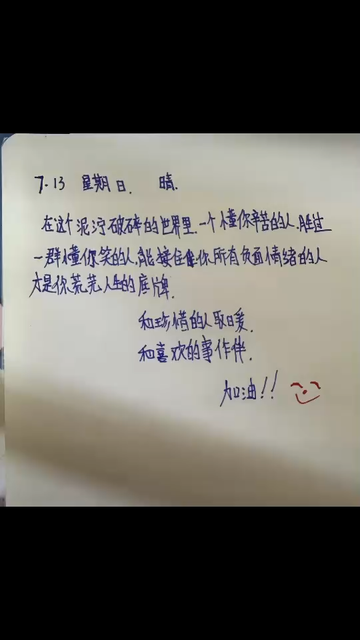 7.13 星期日. 晴.
在这个泥泞破碎的世界里.一个懂你辛苦的人,胜过
一群懂你笑的人,能接住你所有负面情绪的人
才是你荒芜人生的底牌.
和珍惜的人取暖.
和喜欢的事作伴.
加油!!